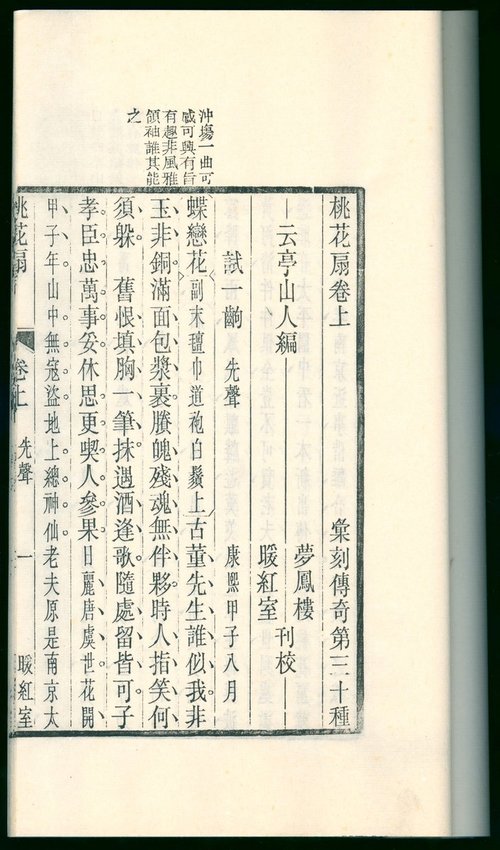 沖塲一曲可
感可興有旨
有趣非風雅
領袖誰其能
之
桃花扇卷上　彙刻傳奇第三十種
云亭山人編　夢鳳樓
暖紅室
刊校
試一齣　先聲　康熙甲子八月
蝶戀花副末氊巾道袍白鬚上古董先生誰似我非
玉非銅滿面包漿裹賸魄殘魂無伴夥時人指笑何
須躲　舊恨填胸一筆抹遇酒逢歌隨處留皆可子
孝臣忠萬事妥休思更喫人參果日麗唐虞世花開
甲子年山中無寇盜地上總神仙老夫原是南京太
桃花扇　卷上　先聲　一　暖紅室